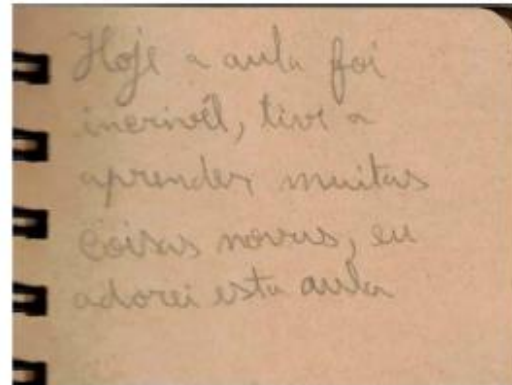 Hoje a aula foi
incrivél, tive a
aprender muitas
coisas novas, eu
adorei esta aula